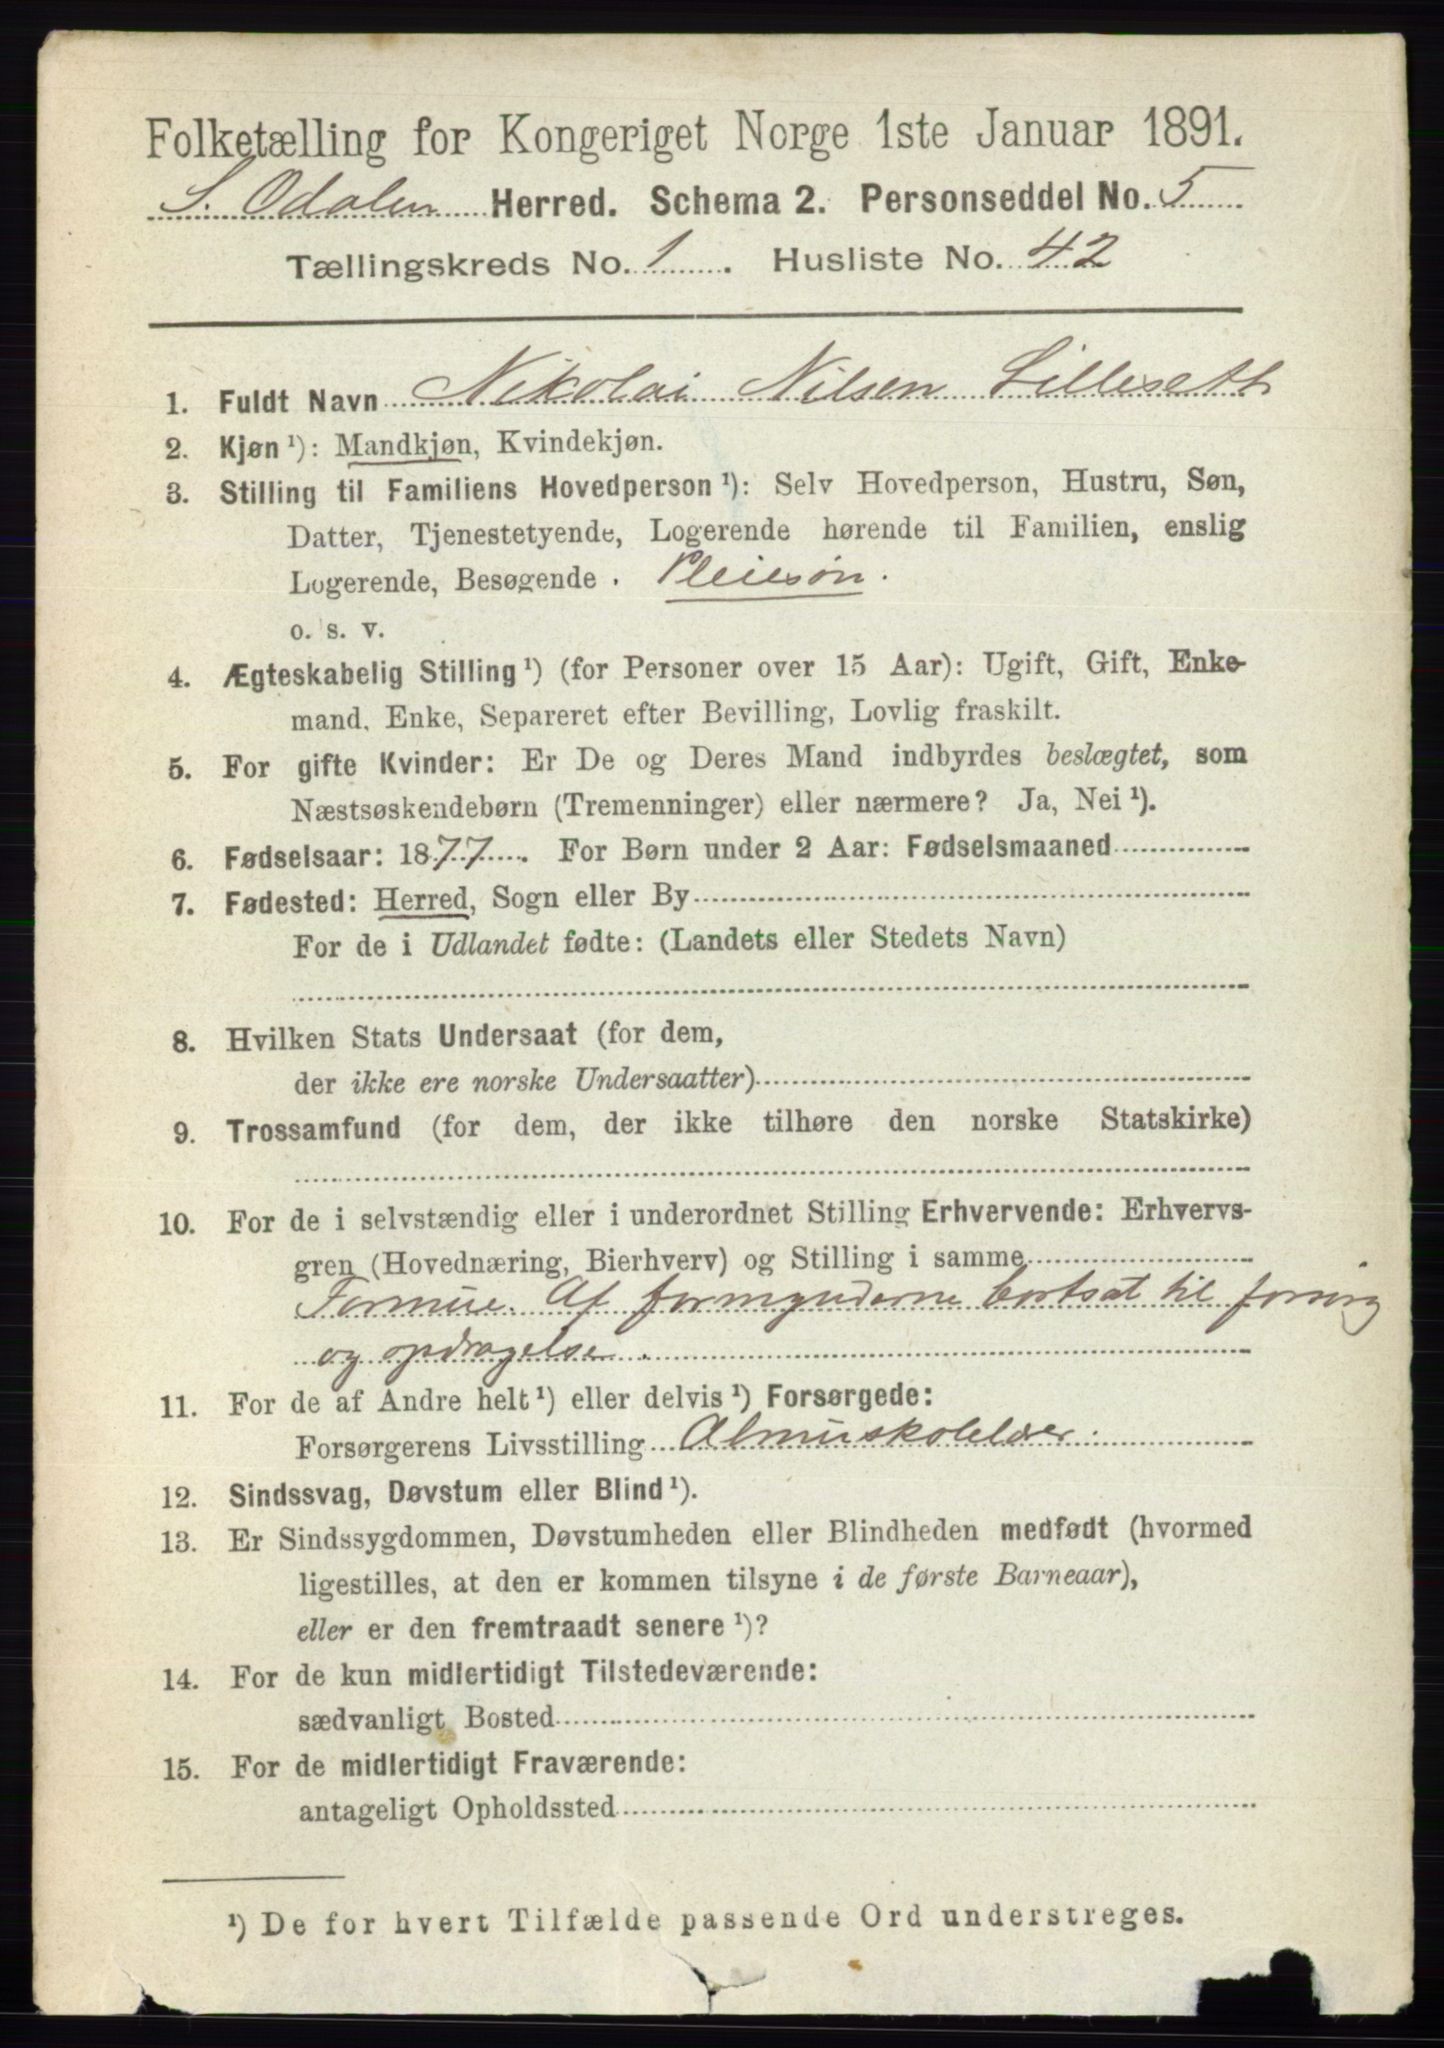 Folketælling for Kongeriget Norge 1ste Januar 1891.
S. Odalen Herred. Schema 2. Personseddel No. 5
Tællingskreds No. 1. Husliste No. 42
1. Fuldt Navn Nikolai Nilsen Lilleseth
2. Kjøn ¹): Mandkjøn, Kvindekjøn.
3. Stilling til Familiens Hovedperson ¹): Selv Hovedperson, Hustru, Søn,
Datter, Tjenestetyende, Logerende hørende til Familien, enslig
Logerende, Besøgende . Pleiesøn.
o. s. v.
4. Ægteskabelig Stilling ¹) (for Personer over 15 Aar): Ugift, Gift, Enke-
mand, Enke, Separeret efter Bevilling, Lovlig fraskilt.
5. For gifte Kvinder: Er De og Deres Mand indbyrdes beslægtet, som
Næstsøskendebørn (Tremenninger) eller nærmere? Ja, Nei ¹).
6. Fødselsaar: 1877. For Børn under 2 Aar: Fødselsmaaned
7. Fødested: Herred, Sogn eller By
For de i Udlandet fødte: (Landets eller Stedets Navn)
8. Hvilken Stats Undersaat (for dem,
der ikke ere norske Undersaatter)
9. Trossamfund (for dem, der ikke tilhøre den norske Statskirke)
10. For de i selvstændig eller i underordnet Stilling Erhvervende: Erhvervs-
gren (Hovednæring, Bierhverv) og Stilling i samme
Formue. Af formynderne bortsat til
og opdragelse.
11. For de af Andre helt ¹) eller delvis ¹) Forsørgede:
Forsørgerens Livsstilling
12. Sindssvag, Døvstum eller Blind ¹).
13. Er Sindssygdommen, Døvstumheden eller Blindheden medfødt (hvormed
ligestilles, at den er kommen tilsyne i de første Barneaar),
eller er den fremtraadt senere ¹)?
14. For de kun midlertidigt Tilstedeværende:
sædvanligt Bosted
15. For de midlertidigt Fraværende:
antageligt Opholdssted
¹) De for hvert Tilfælde passende Ord understreges.